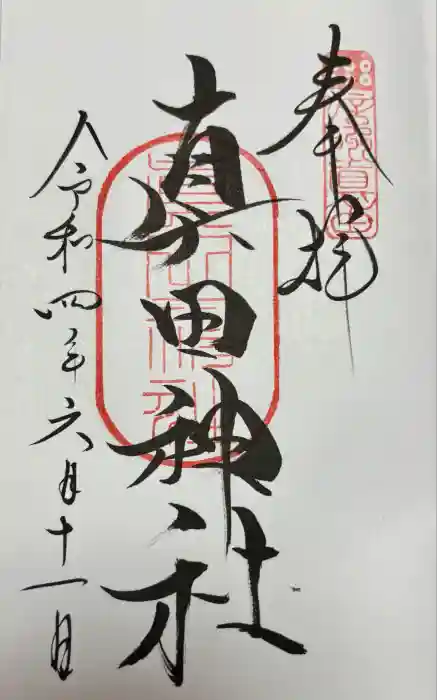 奉拝
真田神社
令和四年六月十一日